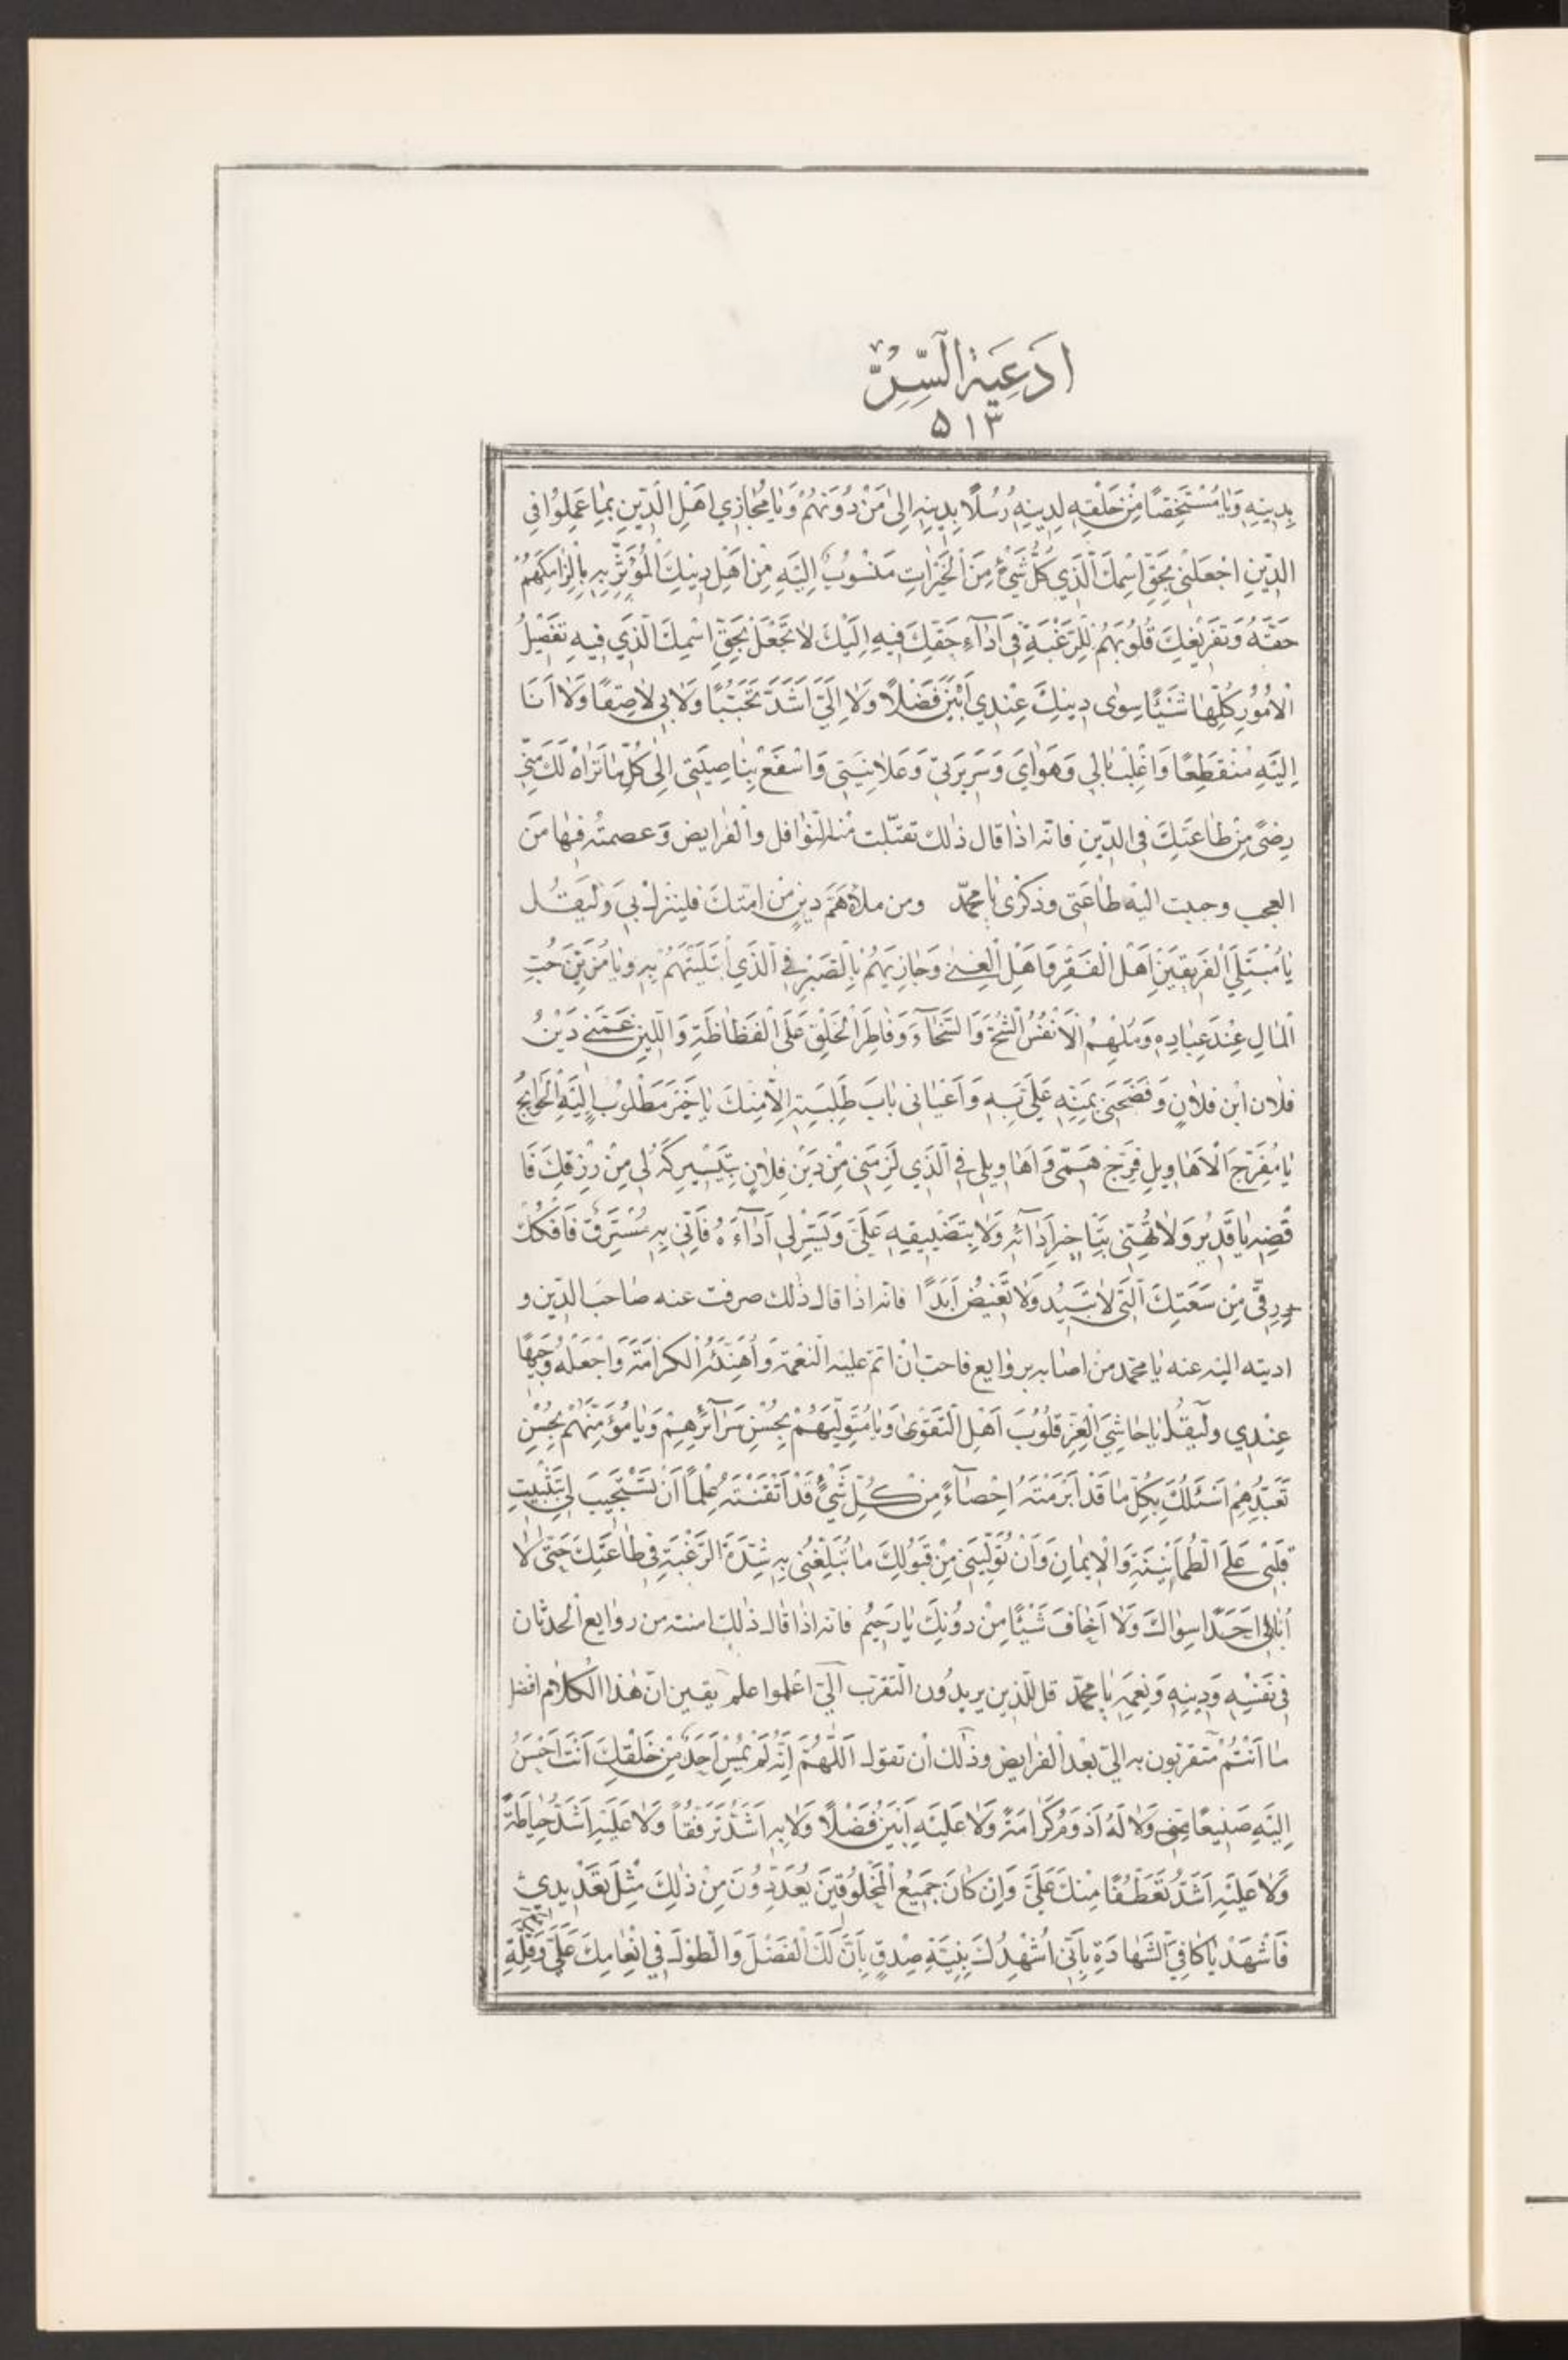 اَدْعِيَةُ السِّرِّ
۵۱۳
بِدِينِهِ وَيَا مُسْتَخِصًّا مِنْ خَلْقِهِ لِدِينِهِ رُسُلًا بِدِينِهِ اِلىٰ مَنْ دُونَهُمْ وَيَا مُجَازِي اَهْلِ الدِّينِ بِمَا عَمِلُوا فِي
الدِّينِ اجْعَلْنِي بِحَقِّ اسْمِكَ الَّذِي كُلُّ شَيْءٍ مِنَ الْخَيْرَاتِ مَنْسُوبٌ اِلَيْهِ مِنْ اَهْلِ دِينِكَ الْمُؤْثَرِ بِهِ بِاِلْزَامِكَهُمْ
حَقَّهُ وَتَفْرِيغِكَ قُلُوبَهُمْ لِلرَّغْبَةِ فِي اَدَآءِ حَقِّكَ فِيهِ اِلَيْكَ لَا تَجْعَلْ بِحَقِّ اسْمِكَ الَّذِي فِيهِ تَفْصِيلُ
الْاُمُورِ كُلِّهَا شَيْئًا سِوٰى دِينِكَ عِنْدِي اَبْيَنَ فَضْلًا وَلَا اِلَيَّ اَشَدَّ تَحَبُّبًا وَلَا بِي لَاصِقًا وَلَا اَنَا
اِلَيْهِ مُنْقَطِعًا وَاغْلِبْ بَالِي وَهَوَايَ وَسَرِيرَتِي وَعَلَانِيَتِي وَاسْفَعْ بِنَاصِيَتِي اِلىٰ كُلِّ مَا تَرَاهُ لَكَ مِنِّي
رِضًى مِنْ طَاعَتِكَ فِي الدِّينِ فانه اذا قال ذلك تقبّلت منه النوافل والفرايض وعصمته فيها من
العجب وحببت اليه طاعتي وذكرى يا محمّد ومن ملأه هَمّ دين من امتك فلينزل بي وليقل
يَا مُبْتَلِيَ الْفَرِيقَيْنِ اَهْلَ الْفَقْرِ وَاَهْلَ الْغِنىٰ وَجَازِيَهُمْ بِالصَّبْرِ فِي الَّذِي ابْتَلَيْتَهُمْ بِهِ وَيَا مُزَيِّنَ حُبِّ
الْمَالِ عِنْدَ عِبَادِهِ وَمُلْهِمَ الْاَنْفُسِ الشُّحَّ وَالسَّخَآءَ وَفَاطِرَ الْخَلْقِ عَلَى الْفَظَاظَةِ وَاللِّينِ غَمَّنِي دَيْنُ
فلان ابْن فلان وَفَضَحَنِي بِمَنِّهِ عَلَيَّ بِهِ وَاَعْيَانِي بَابَ طَلِبَتِهِ اِلَّا مِنْكَ يَا خَيْرَ مَطْلُوبٍ اِلَيْهِ الْحَوَايِجُ
يَا مُفَرِّجَ الْاَهَاوِيلِ فَرِّجْ هَمِّي وَاَهَاوِيلِي فِي الَّذِي لَزِمَنِي مِنْ دَيْنِ فلان بِتَيْسِيرِكَهُ لِي مِنْ رِزْقِكَ فَا
قْضِهِ يَا قَدِيرُ وَلَا تُهِنِّي بِتَأْخِيرِ اَدَائِهِ وَلَا بِتَضْيِيقِهِ عَلَيَّ وَيَسِّرْ لِي اَدَآءَهُ فَاِنِّي بِهِ مُسْتَرَقٌّ فَافْكُكْ
رِقِّي مِنْ سَعَتِكَ الَّتِي لَا تَبِيدُ وَلَا تَغِيضُ اَبَدًا فانه اذا قال ذلك صرفت عنه صاحب الدين و
اديته اليه عنه يا محمّد من اصابه رواىع فاحبّ ان اتم عليه النعمة واهنئه الكرامة واجعله وجيها
عِنْدِي وليقل يَا حَاشِيَ الْعِزِّ قُلُوبَ اَهْلِ التَّقْوىٰ وَيَا مُتَوَلِّيَهُمْ بِحُسْنِ سَرَآئِرِهِمْ وَيَا مُؤَمِّنَهُمْ بِحُسْنِ
تَعَبُّدِهِمْ اَسْئَلُكَ بِكُلِّ مَا قَدْ اَبْرَمْتَهُ اِحْصَآءً مِنْ كُلِّ شَيْءٍ قَدْ اَتْقَنْتَهُ عِلْمًا اَنْ تَسْتَجِيبَ لِي بِتَثْبِيتِ
قَلْبِي عَلَى الطُّمَأْنِينَةِ وَالْاِيمَانِ وَاَنْ تُوَلِّيَنِي مِنْ قَبُولِكَ مَا تُبَلِّغُنِي بِهِ شِدَّةَ الرَّغْبَةِ فِي طَاعَتِكَ حَتّىٰ لَا
اُبَالِيَ اَحَدًا سِوَاكَ وَلَا اَخَافَ شَيْئًا مِنْ دُونِكَ يَا رَحِيمُ فانه اذا قال ذلك امنته من روايع الحدثان
فِي نَفْسِهِ وَدِينِهِ وَنِعَمِهِ يا محمّد قل للّذين يريدون التقرب الىّ اعلموا علم يقين انّ هذا الكلام افضل
ما انتم متقربون به الىّ بعد الفرايض وذلك ان تقول اَللّٰهُمَّ اِنَّهُ لَمْ يُمْسِ اَحَدٌ مِنْ خَلْقِكَ اَنْتَ اَحْسَنُ
اِلَيْهِ صَنِيعًا مِنِّي وَلَا لَهُ اَدْوَمُ كَرَامَةً وَلَا عَلَيْهِ اَبْيَنُ فَضْلًا وَلَا بِهِ اَشَدُّ تَرَفُّقًا وَلَا عَلَيْهِ اَشَدُّ حِيَاطَةً
وَلَا عَلَيْهِ اَشَدُّ تَعَطُّفًا مِنْكَ عَلَيَّ وَاِنْ كَانَ جَمِيعُ الْمَخْلُوقِينَ يُعَدِّدُونَ مِنْ ذٰلِكَ مِثْلَ تَعْدِيدِي
فَاشْهَدْ يَا كَافِيَ الشَّهَادَةِ بِاَنِّي اُشْهِدُكَ بِنِيَّةِ صِدْقٍ بِاَنَّ لَكَ الْفَضْلَ وَالطَّوْلَ فِي اِنْعَامِكَ عَلَيَّ وَقِلَّةِ